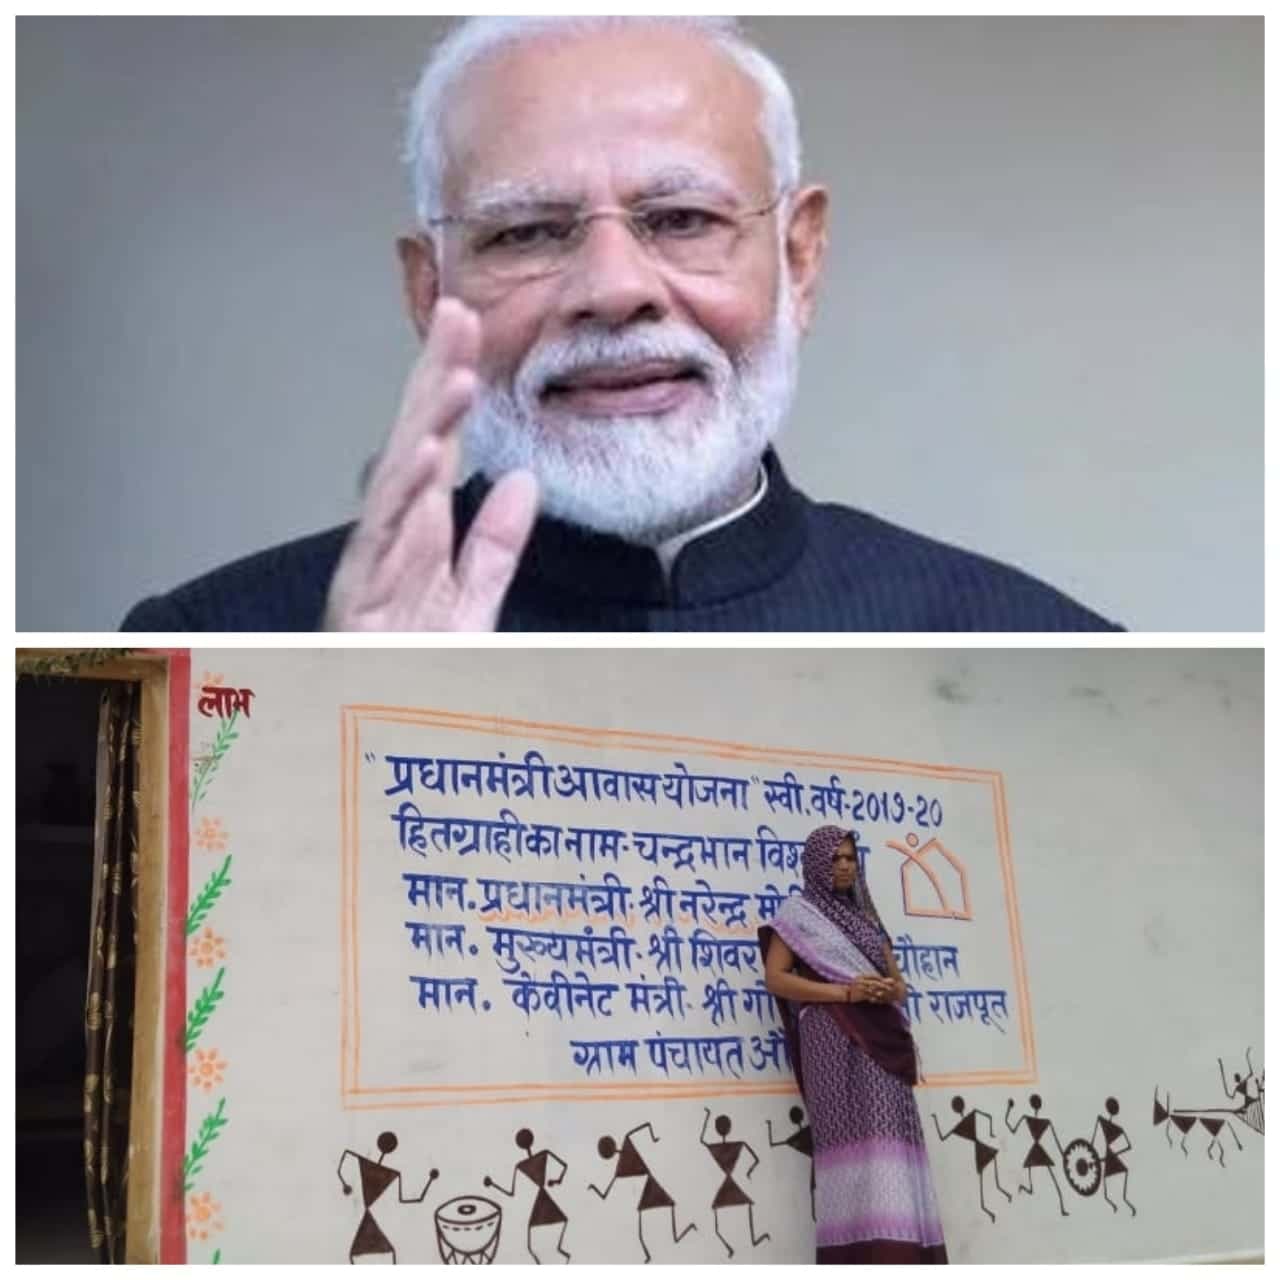 लाभ
"प्रधानमंत्री आवास योजना" स्वी. वर्ष-2019-20
हितग्राही का नाम-चन्द्रभान
मान. प्रधानमंत्री-श्री नरेन्द्र
मान. मुख्यमंत्री-श्री चौहान
मान. केवीनेट मंत्री- श्री राजपूत
ग्राम पंचायत